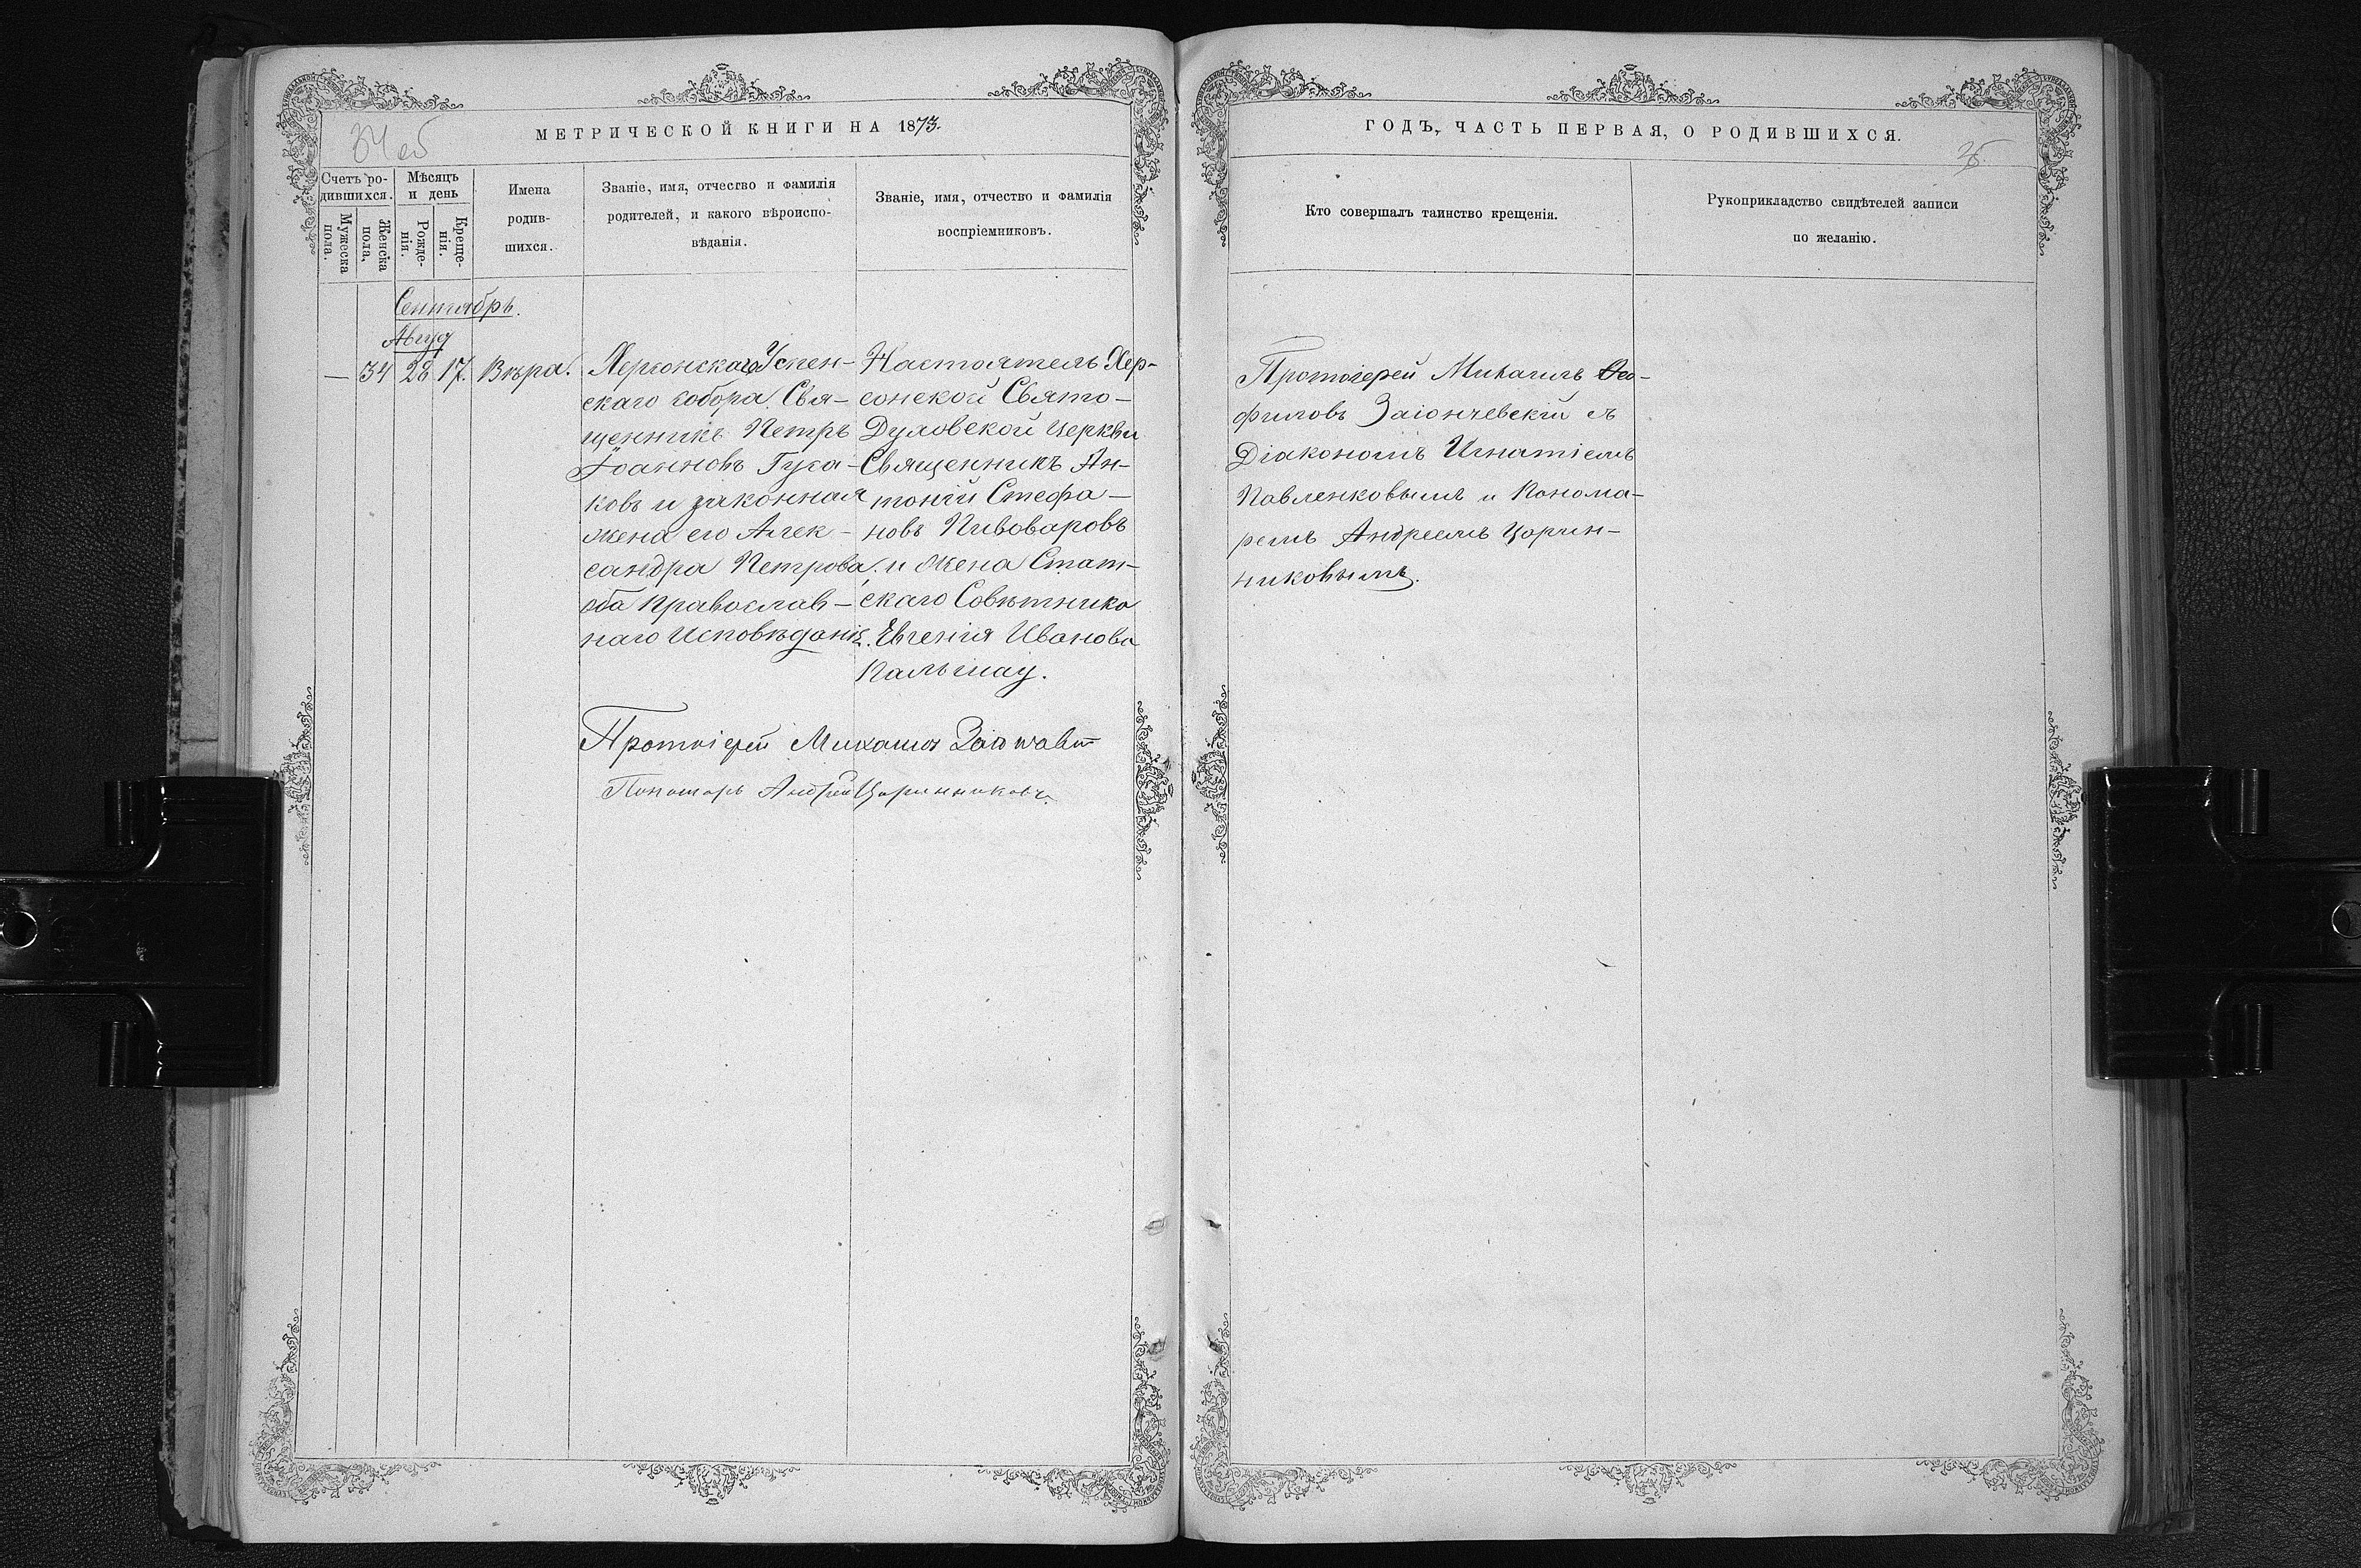 34 об
МЕТРИЧЕСКОЙ КНИГИ НА 1873.
Счетъ ро-
дившихся.
Мужеска
пола.
Женска
пола,
Мѣсяцъ
и день
Рожде-
нія.
Креще-
нія.
Имена
родив-
шихся.
Званіе, имя, отчество и фамилія
родителей, и какого вѣроиспо-
вѣданія.
Званіе, имя, отчество и фамилія
воспріемниковъ.
Сентябрь.
Авгус
— 34 28 17. Вѣра.
Херсонскаго Успен-
скаго собора Свя-
щенникъ Петръ
Іоанновъ Гуса-
ковъ и законная
жена его Алек-
сандра Петрова.
оба православ-
наго исповѣданія.
Настоятель Хер-
сонской Свято-
Духовской церкви
Священникъ Ан-
тоній Стефа-
новъ Пивоваровъ
и жена Стат-
скаго Совѣтника
Евгенія Иванова
Протоіерей Михаилъ
Пономарь Андрей Царинниковъ.
ГОДЪ, ЧАСТЬ ПЕРВАЯ, О РОДИВШИХСЯ.
35
Кто совершалъ таинство крещенія.
Рукоприкладство свидѣтелей записи
по желанію.
Протоіерей Михаилъ Ѳео-
филовъ Заіончевскій съ
Діакономъ Игнатіемъ
Павленковымъ и Понома-
ремъ Андреемъ Царин-
никовымъ.